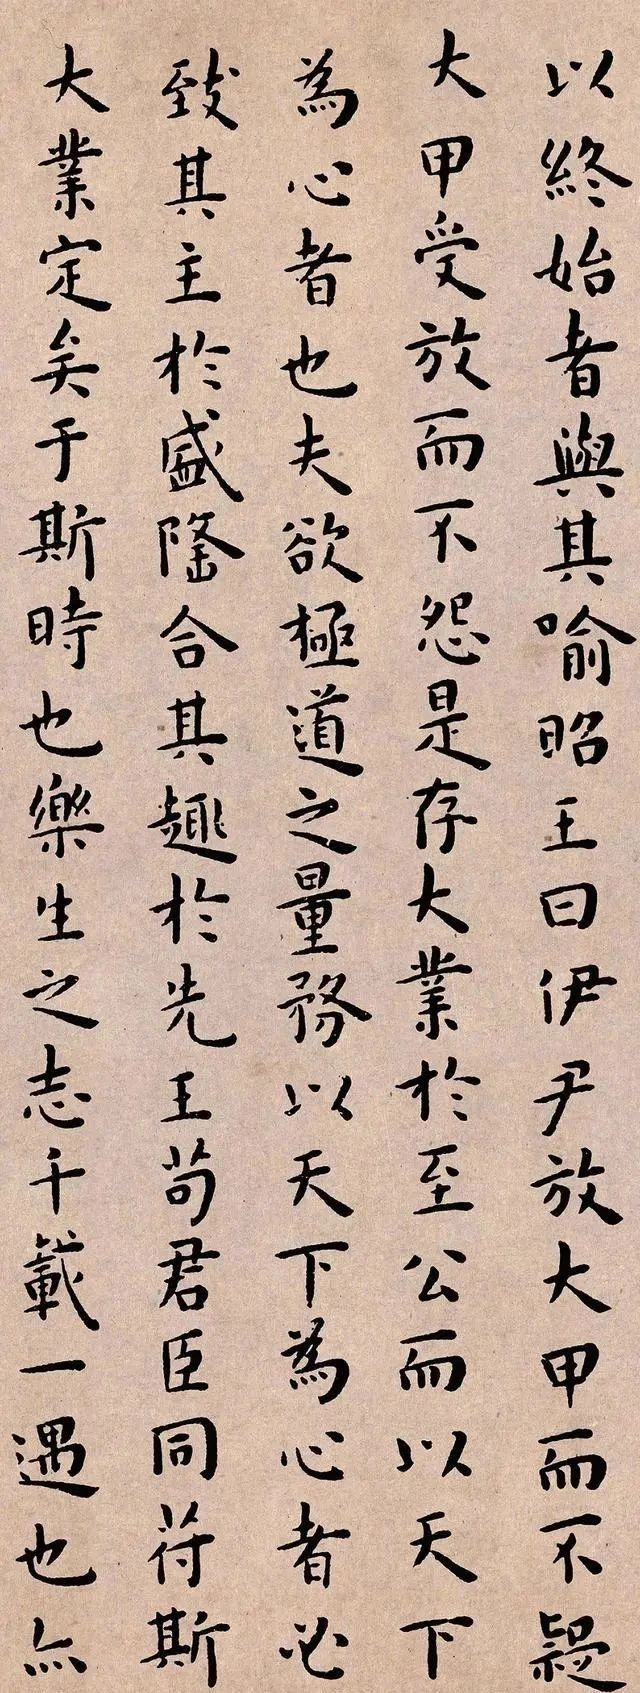 以終始者與其喻昭王曰伊尹放大甲而不疑
大甲受放而不怨是存大業於至公而以天下
為心者也夫欲極道之量務以天下為心者必
致其主於盛隆合其趣於先王苟君臣同苻斯
大業定矣于斯時也樂生之志千載一遇也亦